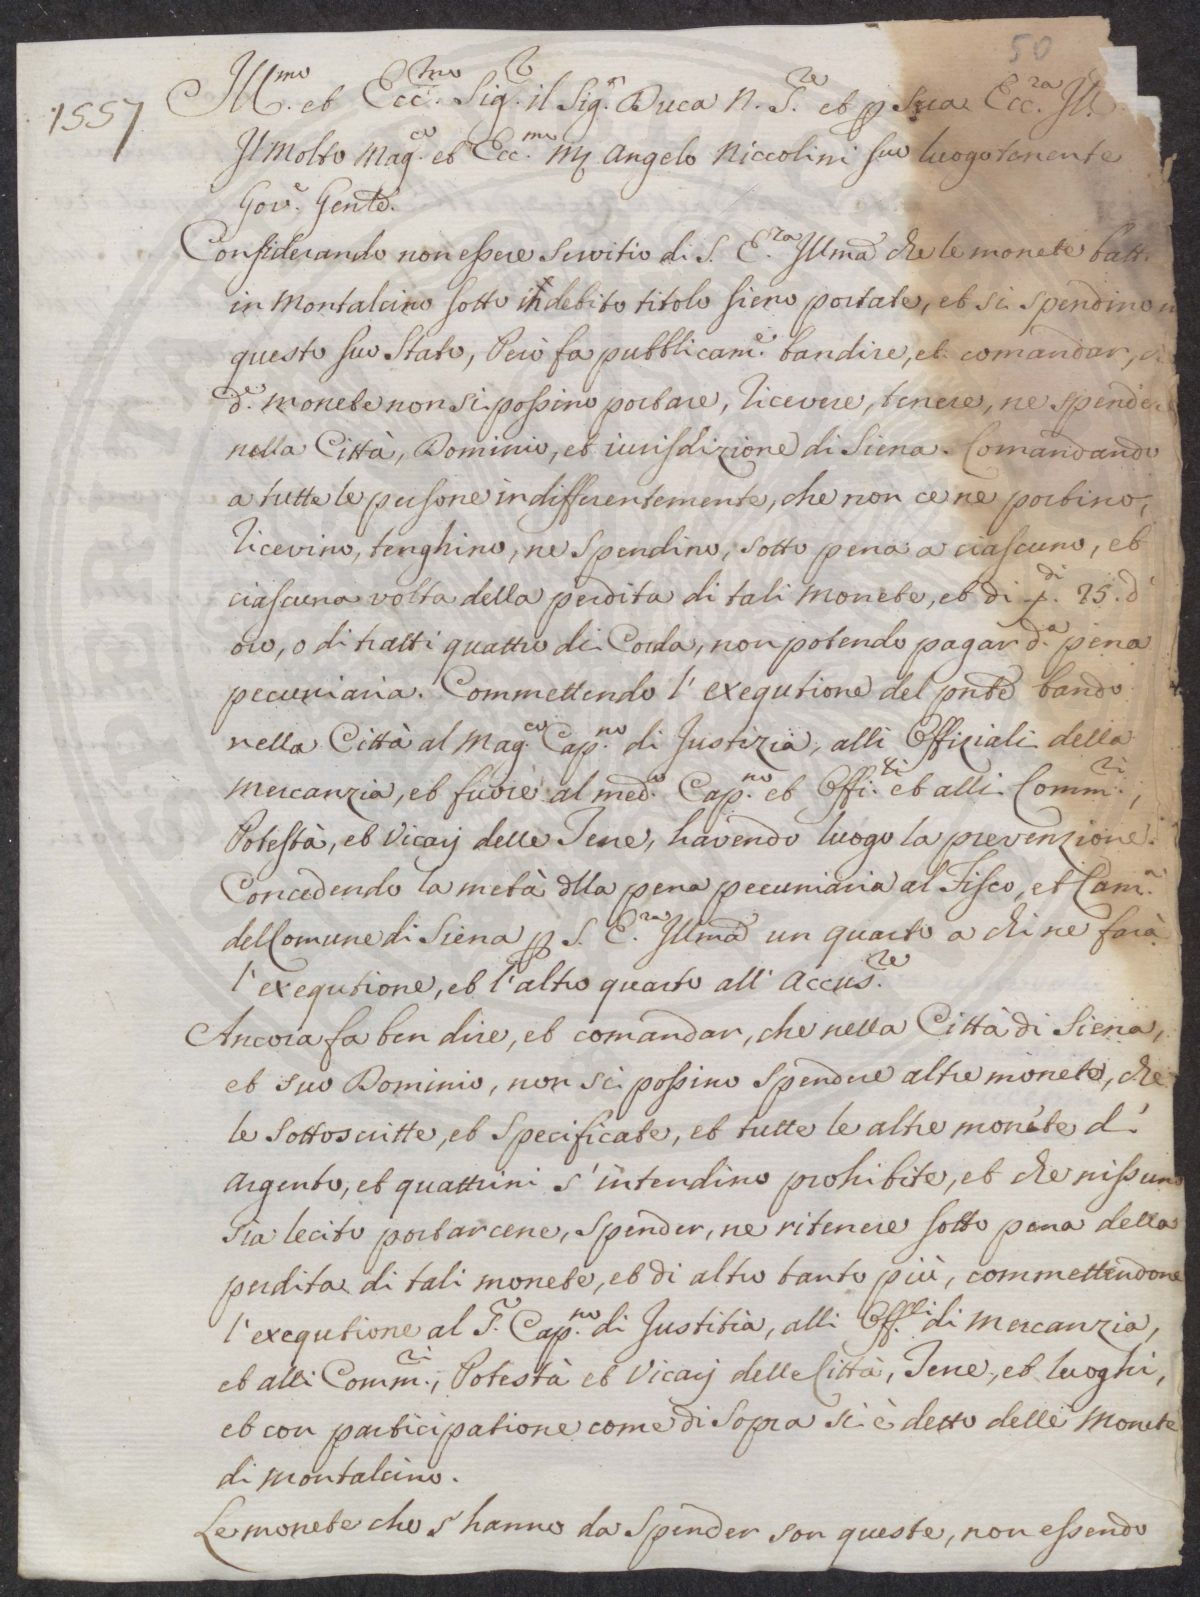 50
1557
Ill.mo et Ecc.mo Sig.r il Sig.r Duca N. S.re et p Sua Ecc.za Ill.
Il Molto Mag.co et Ecc.mo M. Angelo Niccolini suo luogotenente
Gov.e Gen̅te.
Considerando non essere servitio di S. E.za Illma che le monete batt.
in Montalcino sotto indebito titolo sieno portate, et si spendino
questo suo Stato, Però fa pubblicam.e bandire, et comandar,
d.e monete non si possino portare, ricevere, tenere, ne spendere
nella Città, Dominio, et iurisdizione di Siena. Comandando
a tutte le persone indifferentemente, che non ce ne portino,
ricevino, tenghino, ne spendino, sotto pena a ciascuno, et
ciascuna volta della perdita di tali monete, et di 25. d'
oro, o di tratti quattro di Corda, non potendo pagar d.a pena
pecuniaria. Commettendo l'exequtione del pnte bando
nella Città al Mag.co Cap.no di Justizia, alli Offiziali della
Mercanzia, et fuore al med.o Cap.no et Offi.li et alli Comm.ri,
Potestà, et Vicarij delle Terre, havendo luogo la prevenzione.
Concedendo la metà dlla pena pecuniaria al Fisco, et Cam.a
del Comune di Siena p S. E.za Illma un quarto a chi ne farà
l'exequtione, et l'altro quarto all'Accus.re
Ancora fa ben dire, et comandar, che nella Città di Siena,
et suo Dominio, non si possino spendere altre monete, che
le sottoscritte, et specificate, et tutte le altre monete d'
Argento, et quattrini s'intendino prohibite, et che nissuno
sia lecito portarcene, spender, ne ritenere sotto pena della
perdita di tali monete, et di altro tanto più, commettendone
l'exequtione al S.r Cap.no di Justitia, alli Off.li di Mercanzia,
et alli Comm.ri, Potestà et Vicarij delle Città, Terre, et luoghi,
et con participatione come di sopra si è detto delle Monete
di Montalcino.
Le monete che s'hanno da spender son queste, non essendo